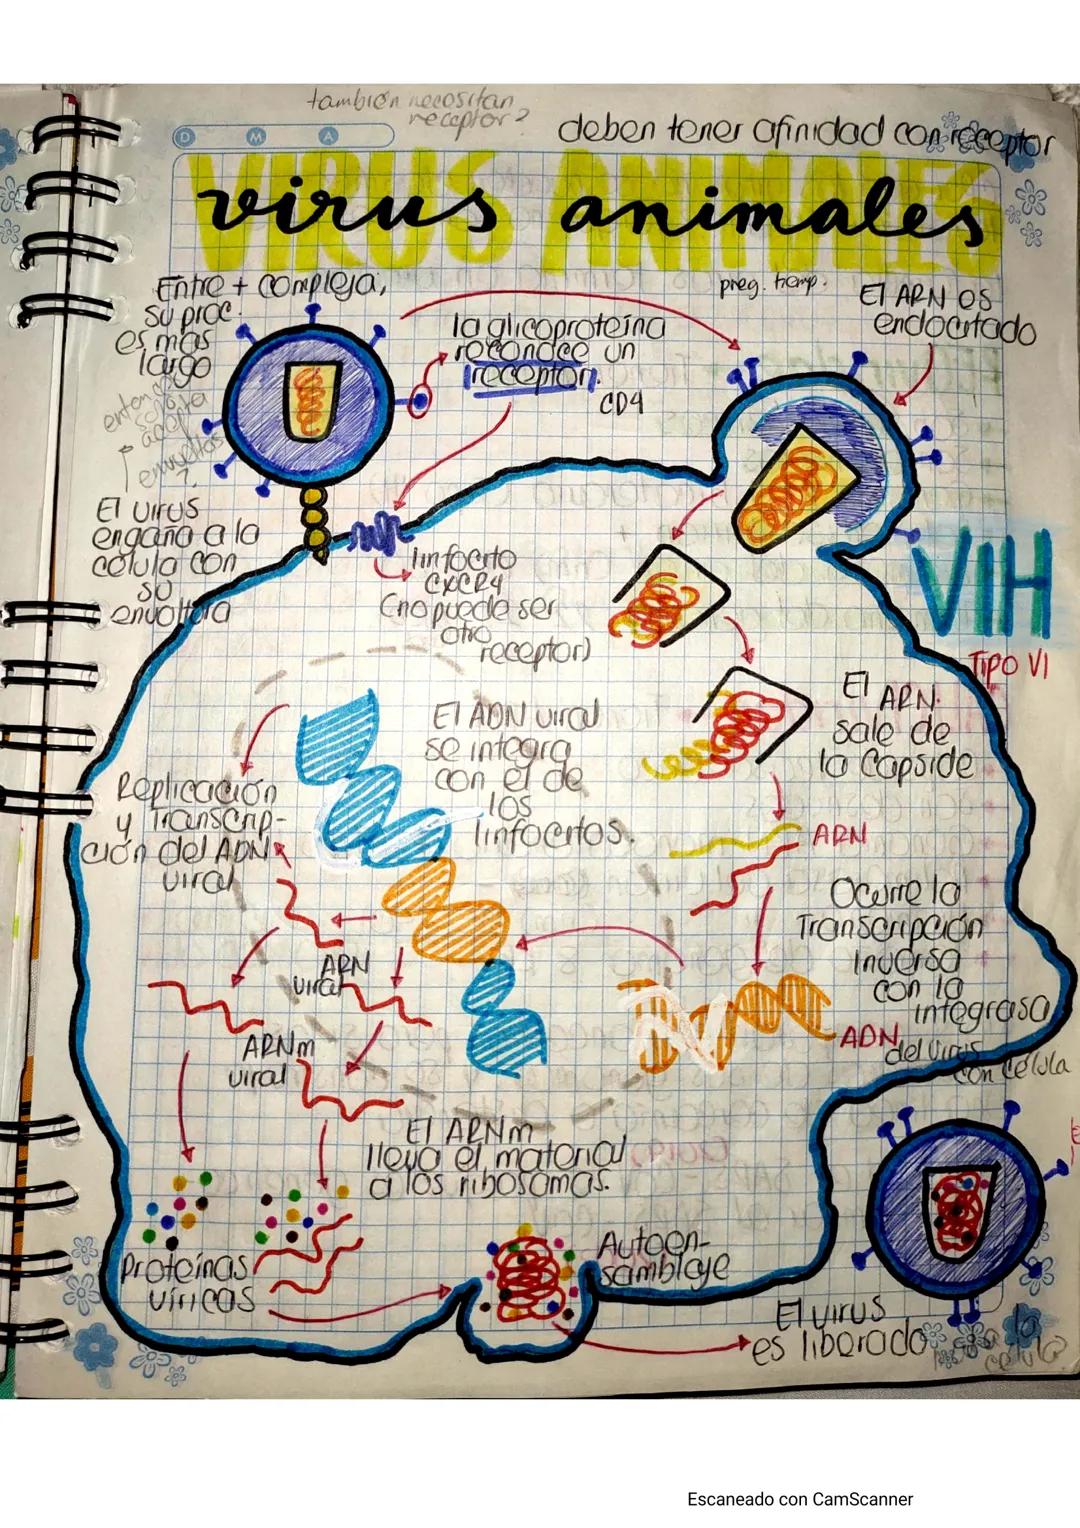 también necesitan
receptor?
deben tener afinidad con receptor
D M A
VIRUS ANIMALES
virus animales
Entre + compleja,
su proc.
es más
largo
preg. temp.
El ARN es
endocitado
la glicoproteína
reconoce un
receptor.
CD4
acepta
envueltos
?
El virus
engaña a la
célula con
su
envoltura
linfocito
CXCR4
(no puede ser
otro
receptor)
VIH
TIPO VI
El ARN
sale de
la Capside
El ADN viral
se integra
con el de
los
linfocitos.
Replicación
y Transcrip-
ción del ADN
viral
ARN
Ocurre la
Transcripción
Inversa
con la
integrasa
del virus
con célula
ADN
ARN
viral
ARNm
viral
El ARNm
lleva el material
a los ribosomas.
Proteínas
víricas
Autoen-
samblaje
El virus
es liberado
la
célula
Escaneado con CamScanner